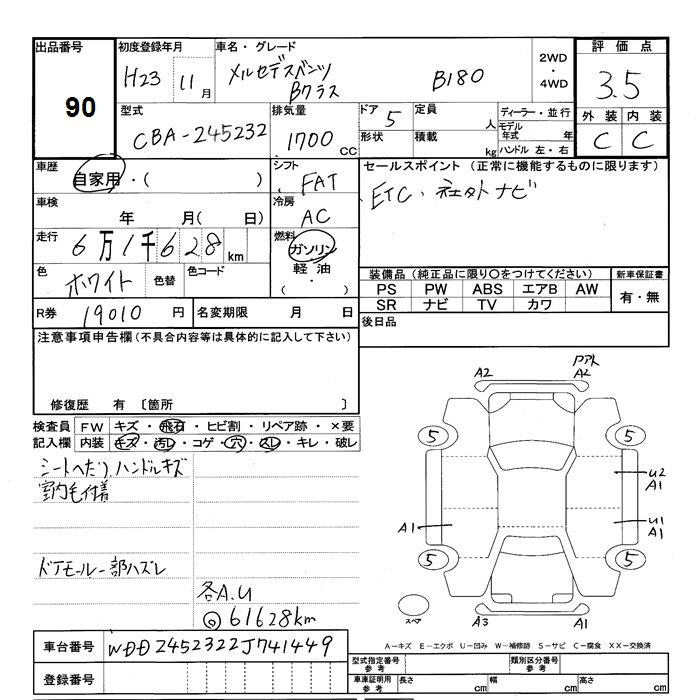 出品番号 初度登録年月 車名・グレード 2WD・4WD 評価点
90 H23 11月 メルセデスベンツ Bクラス B180 3.5
型式 排気量 ドア 5 定員 人 ディーラー・並行 外装 内装
CBA-245232 1700 CC 形状 積載 kg モデル年式 年 C C
ハンドル 左・右
車歴 シフト セールスポイント (正常に機能するものに限ります)
自家用・( ) FAT ETC. 社外ナビ
車検 冷房
年 月(日) AC
走行 燃料
6万1千628km ガソリン
色 色替 色コード 軽油
ホワイト ( ・ ) 装備品 (純正品に限り○をつけてください) 新車保証書
PS PW ABS エアB AW 有・無
SR ナビ TV カワ
R券 19010 円 名変期限 月 日 後日品
注意事項申告欄 (不具合内容等は具体的に記入して下さい)
修復歴 有 〔箇所 〕
検査員 FW キズ・飛石・ヒビ割・リペア跡・×要
記入欄 内装 キズ・汚レ・コゲ・穴・スレ・キレ・破レ
シートへたり、ハンドルキズ
室内毛付着
ドアモール一部ハズレ
各A.U
◎ 61628km
A2 A2
5 5
U2
A1
A1 U1
A1
5 5
スペア A3 A1
A-キズ E-エクボ U-凹み W-補修跡 S-サビ C-腐食 XX-交換済
車台番号 WDD2452322J741449
型式指定番号 参考 類別区分番号 参考
登録番号 車庫証明用 参考 長さ cm 幅 cm 高さ cm